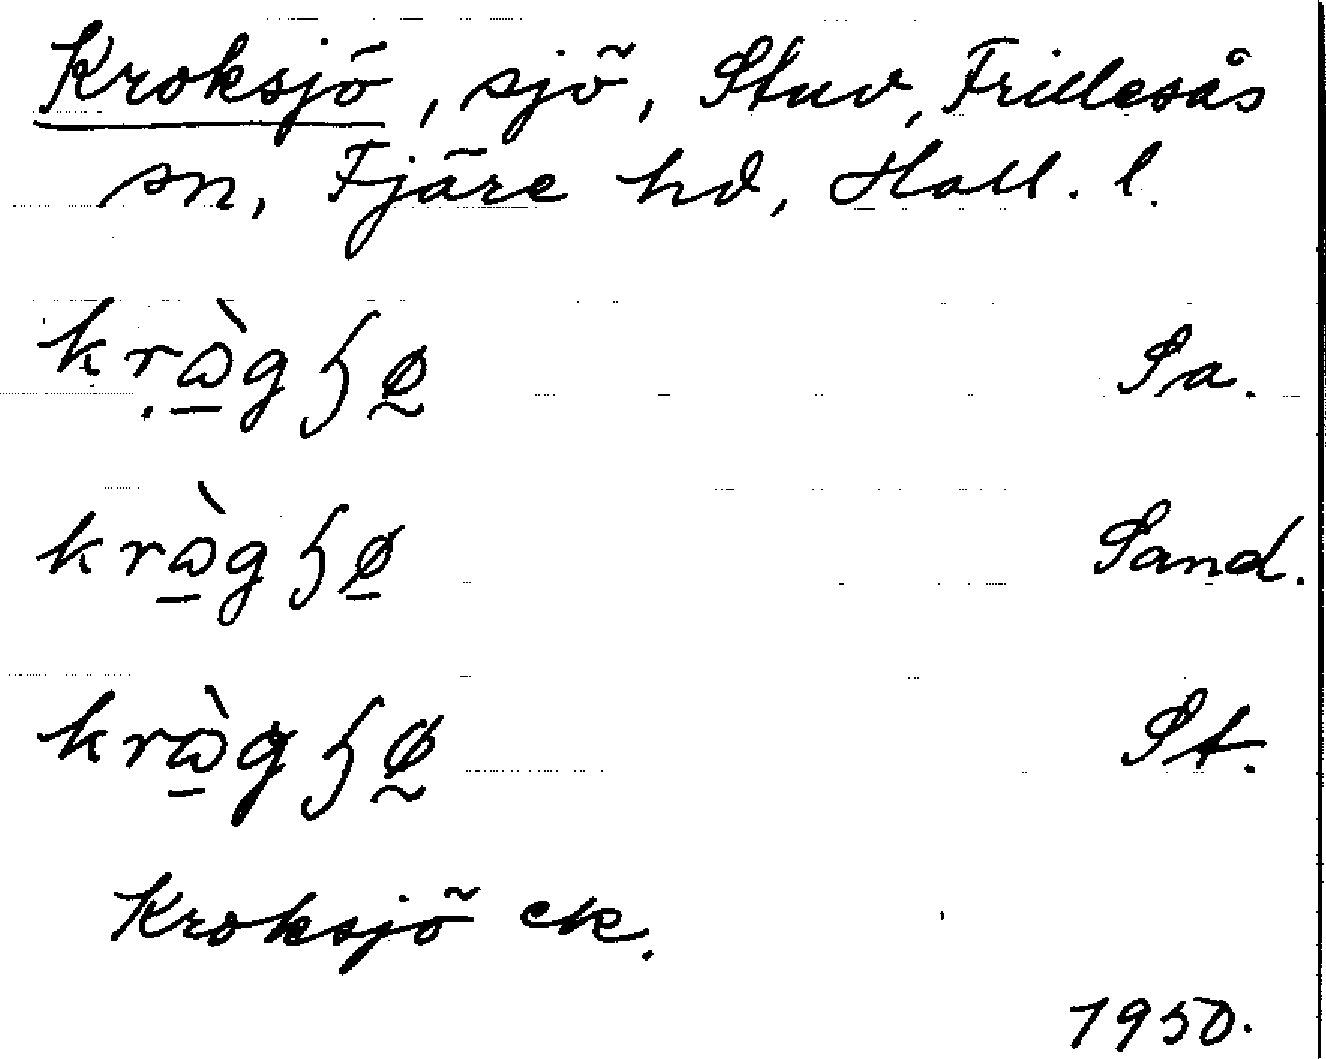 Kroksjö, sjö, Stuv, Frillesås
sn, Fjäre hd, Hall. l.
kṛɷ̠̀gꜧø̰ Sa.
krɷ̠̀gꜧø̠ Sand.
krɷ̠̀gꜧø̰ St.
Kroksjö ek.
1950.